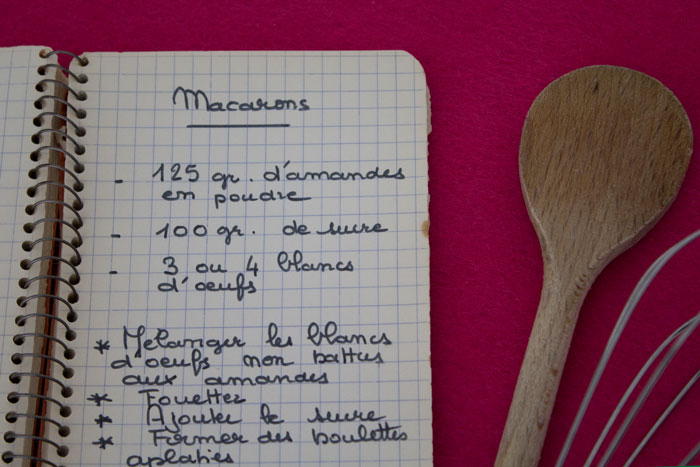 Macarons
- 125 gr. d'amandes
en poudre
- 100 gr. de sucre
- 3 ou 4 blancs
d'oeufs
* Mélanger les blancs
d'oeufs non battus
aux amandes
* Fouetter
* Ajouter le sucre
* Former des boulettes
aplaties